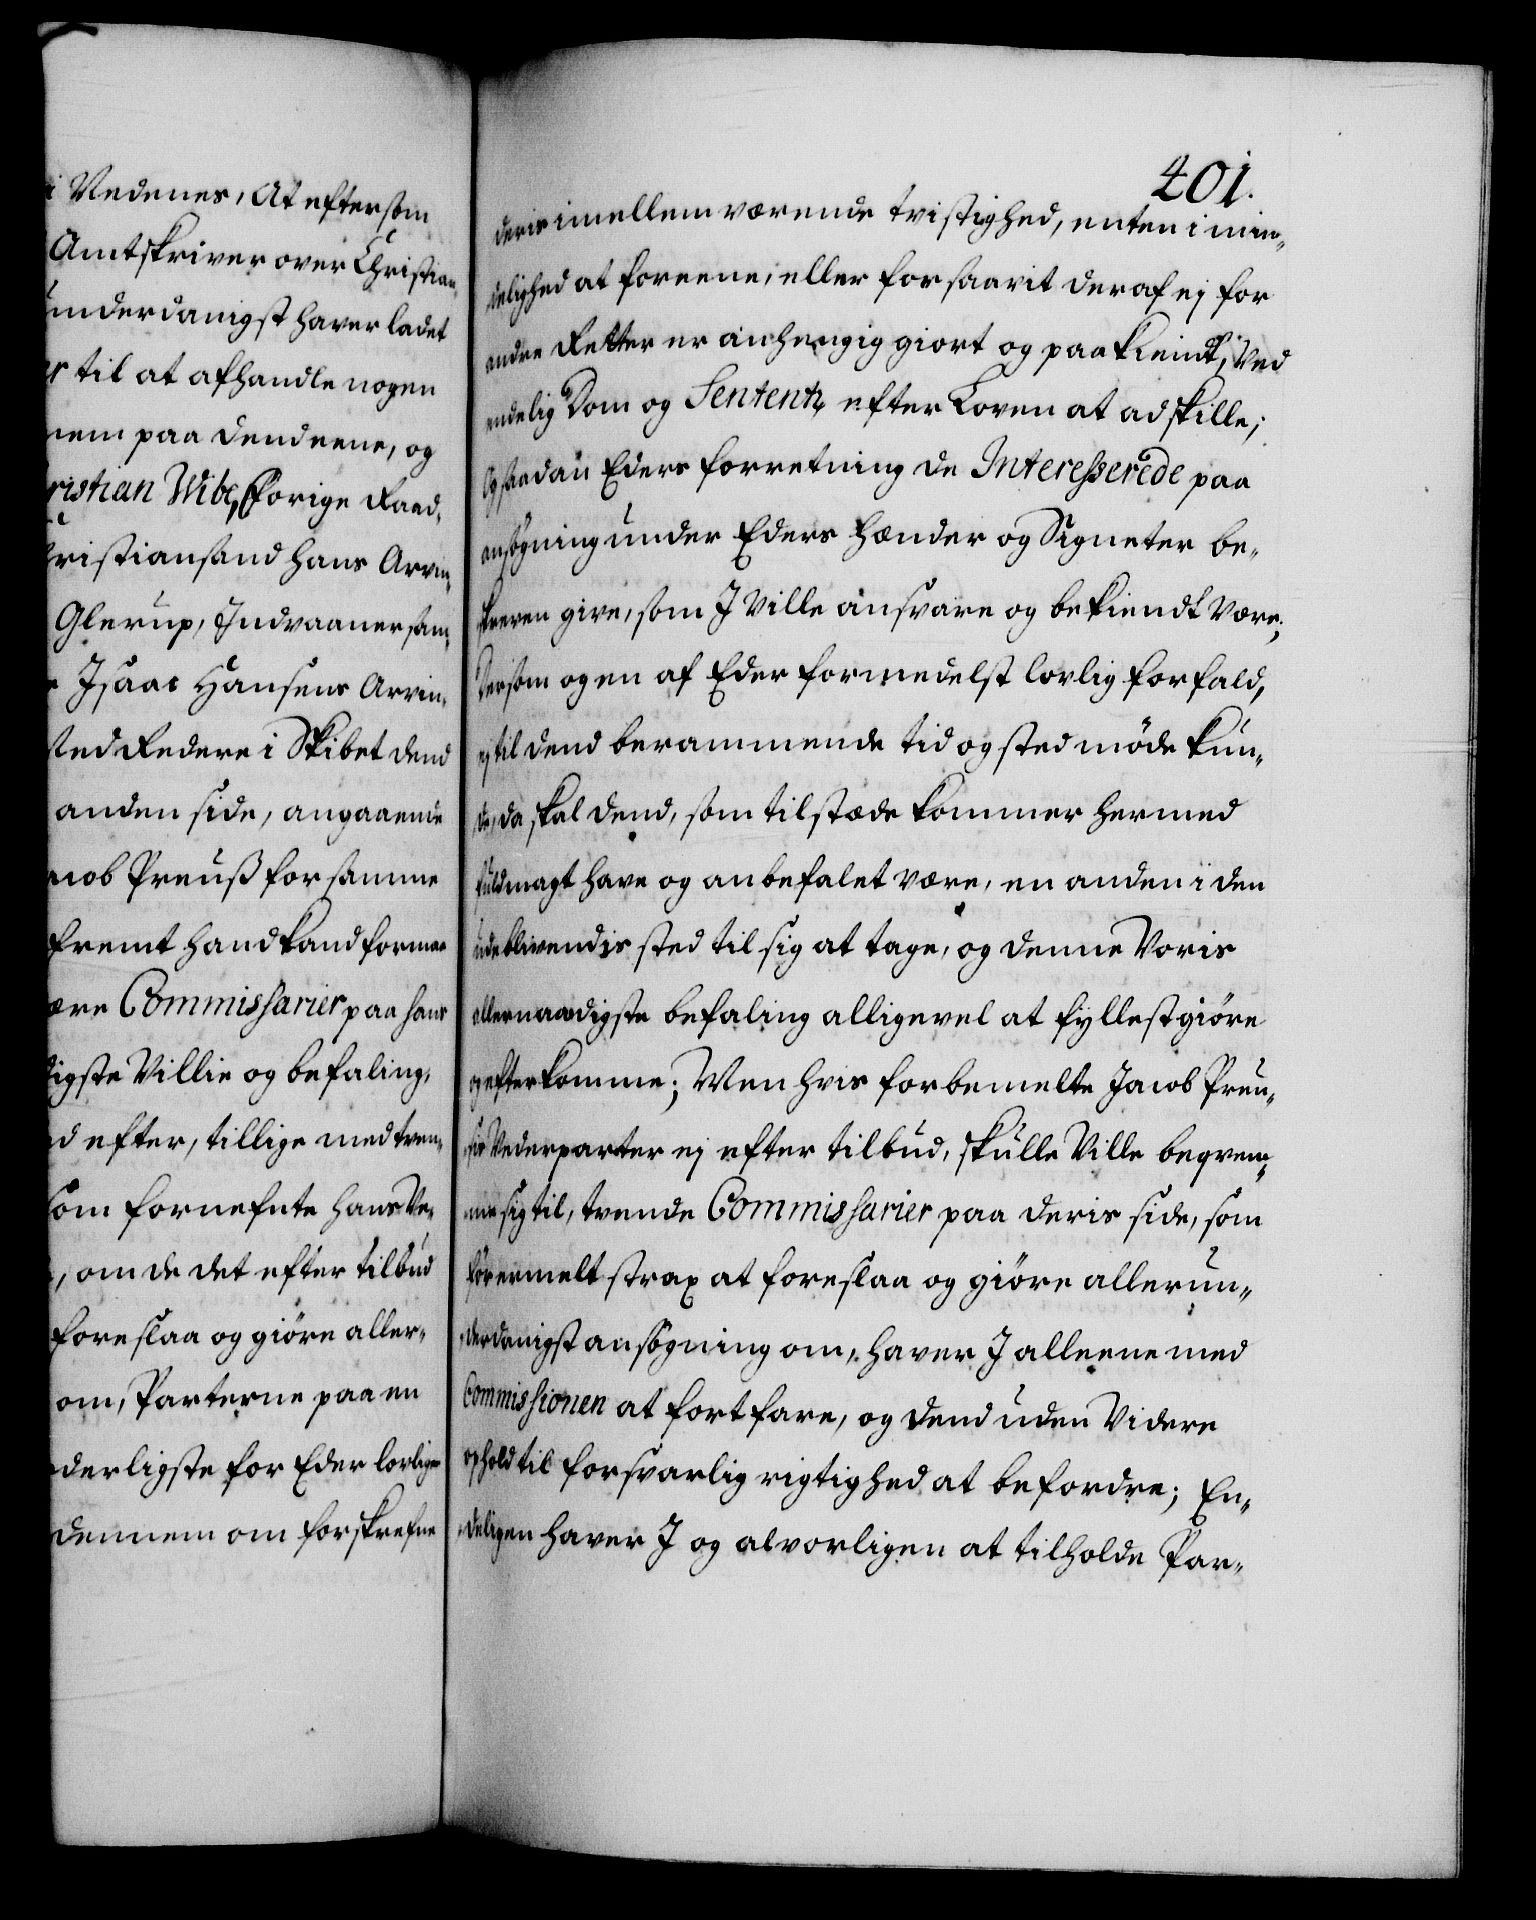 i Nedenes, At eftersom
Amtskriver over Christian-
underdanigst haver ladet
til at afhandle nogen
nem paa dend eene, og
ristian Wibe, forige Raad-
hristiansand Hans Arvin-
Glerup, Indvaaner sam-
Isaac Hansens Arvin-
sted Redere i Skibet dend
anden side, angaaende
acob Preuss for samme
fremt hand kand formaa
være Commissarier paa hans
digste Villie og befaling,
d efter, tillige med tven-
som fornefnte hans Ve-
, om de det efter tilbud
foreslaa og giøre aller-
om, Parterne paa en
derligste for Eder lovligen
dennem om forskrefne
401.
deris imellem værende tvistighed, enten i min-
delighed at foreene, eller forsaavit deraf ej for
andre Retter er anhengig giort og paakiendt, Ved
endelig Dom og Sententz efter Loven at adskille;
Og saadan Eders forretning de Interesserede paa
ansøgning under Eders Hænder og Signeter be-
skreven give, som J Ville ansvare og bekiendt Være;
Dersom ogen af Eder formedelst lovlig forfald,
ej til dend berammende tid og sted møde kun-
de, da skal dend, som tilstæde kommer hermed
fuldmagt have og anbefalet være, en anden i den
udeblivendis sted til sig at tage, og denne Voris
allernaadigste befaling alligevel at fyllestgiøre
og efterkomme; Men hvis forbemelte Jacob Preu-
sis Vederparter ej efter tilbud, skulle Ville beqvem-
me sig til, tvende Commissarier paa deris side, som
forermelt strax at foreslaa og giøre allerun-
derdanigst ansøgning om, haver J alleene med
Commissionen at fortfare, og dend uden Videre
ophold til forsvarlig rigtighed at befordre; En-
deligen haver J og alvorligen at tilholde Par-